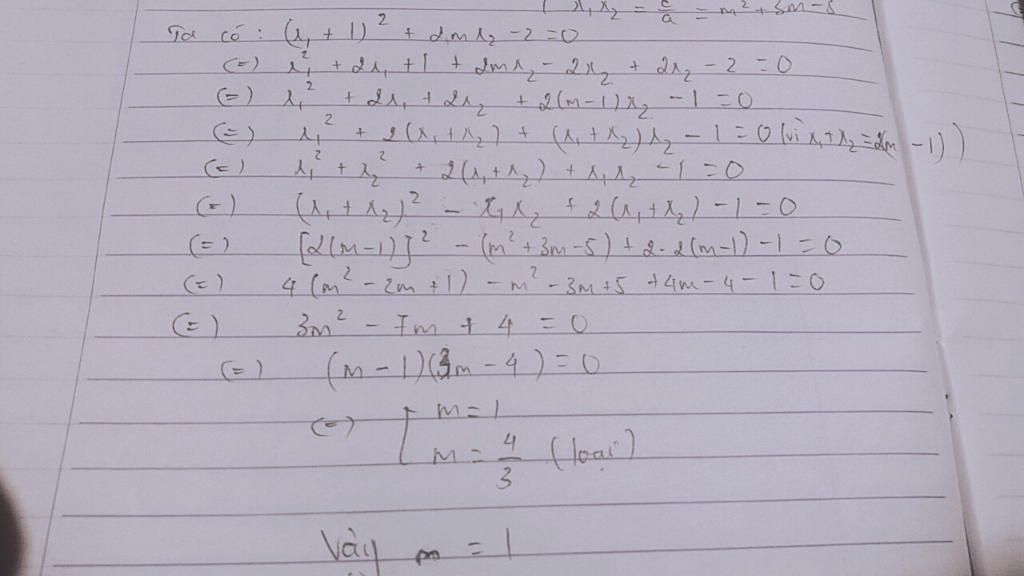 x₁x₂ = c/a = m² + 3m - 5
Ta có : (x₁ + 1)² + 2mx₂ - 2 = 0
(=) x₁² + 2x₁ + 1 + 2mx₂ - 2x₂ + 2x₂ - 2 = 0
(=) x₁² + 2x₁ + 2x₂ + 2(m-1)x₂ - 1 = 0
(=) x₁² + 2(x₁+x₂) + (x₁+x₂)x₂ - 1 = 0 (vì x₁+x₂ = 2(m-1))
(=) x₁² + x₂² + 2(x₁+x₂) + x₁x₂ - 1 = 0
(=) (x₁ + x₂)² - x₁x₂ + 2(x₁+x₂) - 1 = 0
(=) [2(m-1)]² - (m² + 3m - 5) + 2.2(m-1) - 1 = 0
(=) 4(m² - 2m + 1) - m² - 3m + 5 + 4m - 4 - 1 = 0
(=) 3m² - 7m + 4 = 0
(=) (m - 1)(3m - 4) = 0
(=) [ m = 1
m = 4/3 (loại)
Vậy m = 1